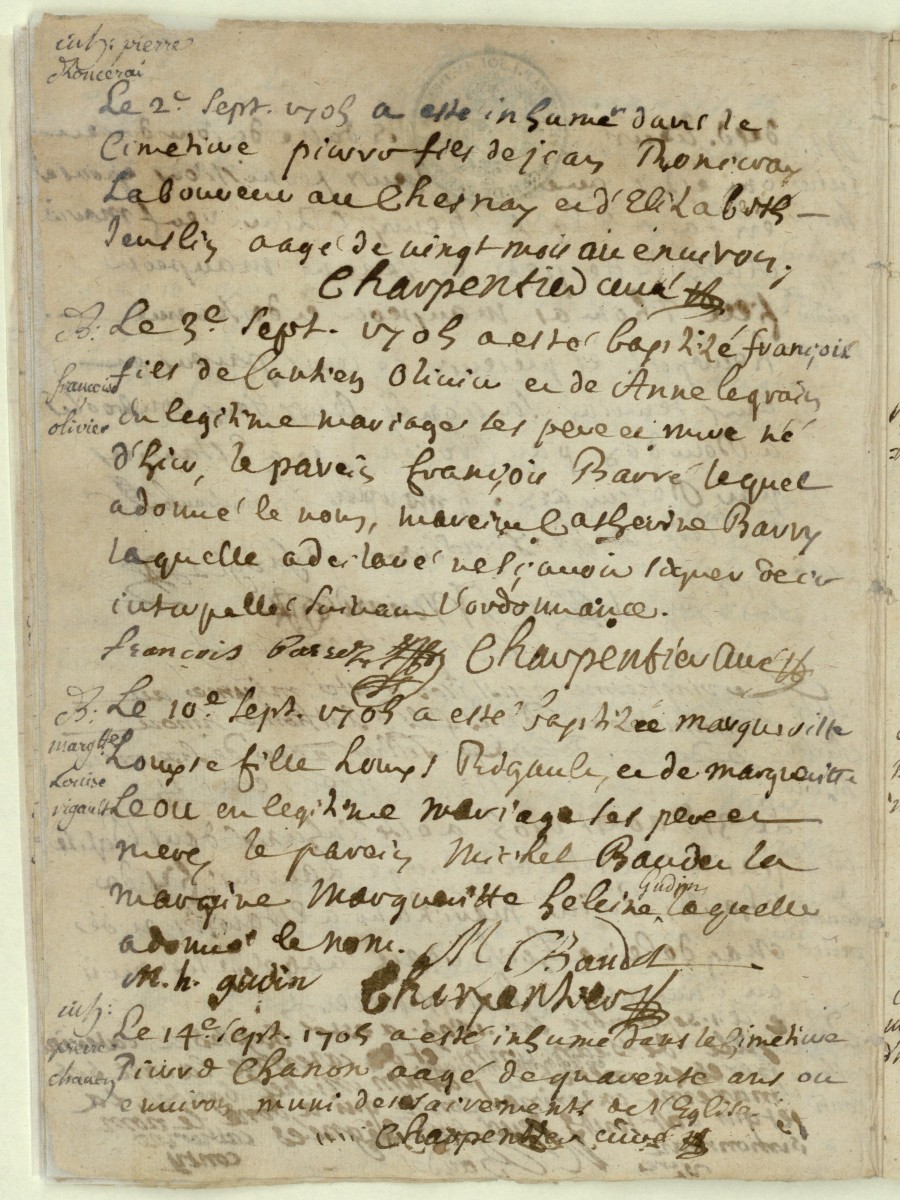 inh: pierre
Le 2e Sept. 1705 a esté inhumé dans le
Cimetiere pierre fils de jean Ronseray
Laboureur au Chesnay et d'Elizabeth
aagé de vingt mois ou environ.
Charpentier curé
B: Le 3e Sept. 1705 a esté baptizé françois
françois
olivier
fils de Olivier et de Anne legrain
en legitime mariage ses pere et mere né
d'hier, le parein françois Barré lequel
a donné le nom, mareine Catherine Barry
laquelle a declaré ne sçavoir signer de ce
interpellée suivant l'ordonnance.
françois Charpentier curé
B: Le 10e Sept. 1705 a esté baptizée margueritte
margtte
Louise
rigault
Louyse fille Louys Rigault, et de margueritte
Leou en legitime mariage ses pere et
mere, le parein Michel Baudet la
mareine Margueritte heleine Gudin laquelle
a donné le nom. M Baudet
M. h. gudin Charpentier
inh:
pierre
Le 14e Sept. 1705 a esté inhumé dans le Cimetiere
Pierre Chanon aagé de quarente ans ou
environ muni des sacrements de l'Eglise.
Charpentier curé